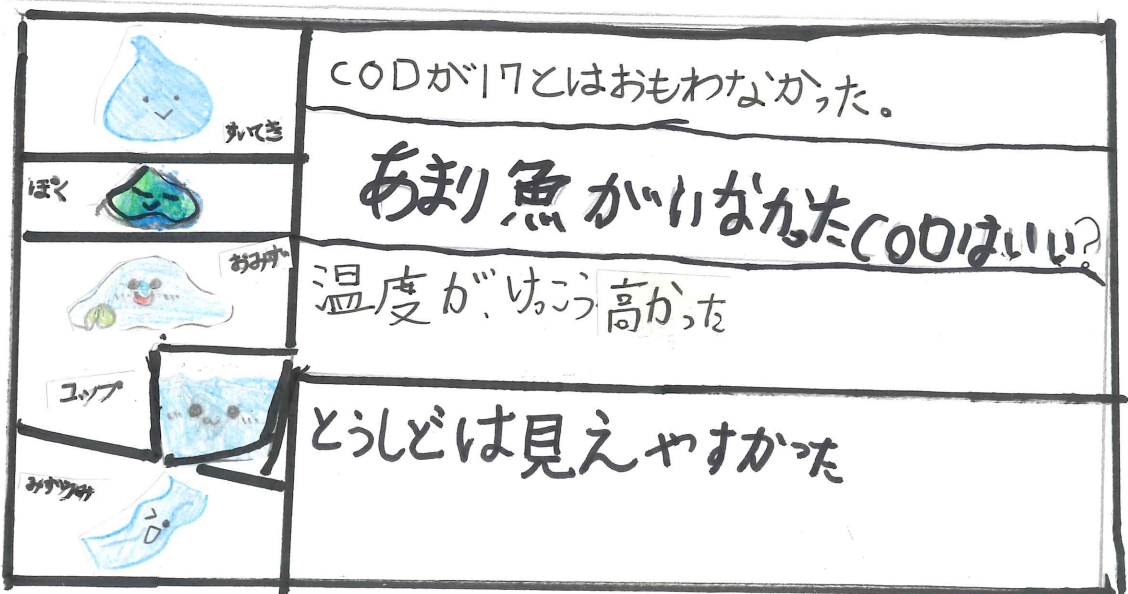 すいてき
CODが17とはおもわなかった。
ぼく
あまり魚がいなかったCODはいい?
おみず
温度が、けっこう高かった
コップ
とうしどは見えやすかった